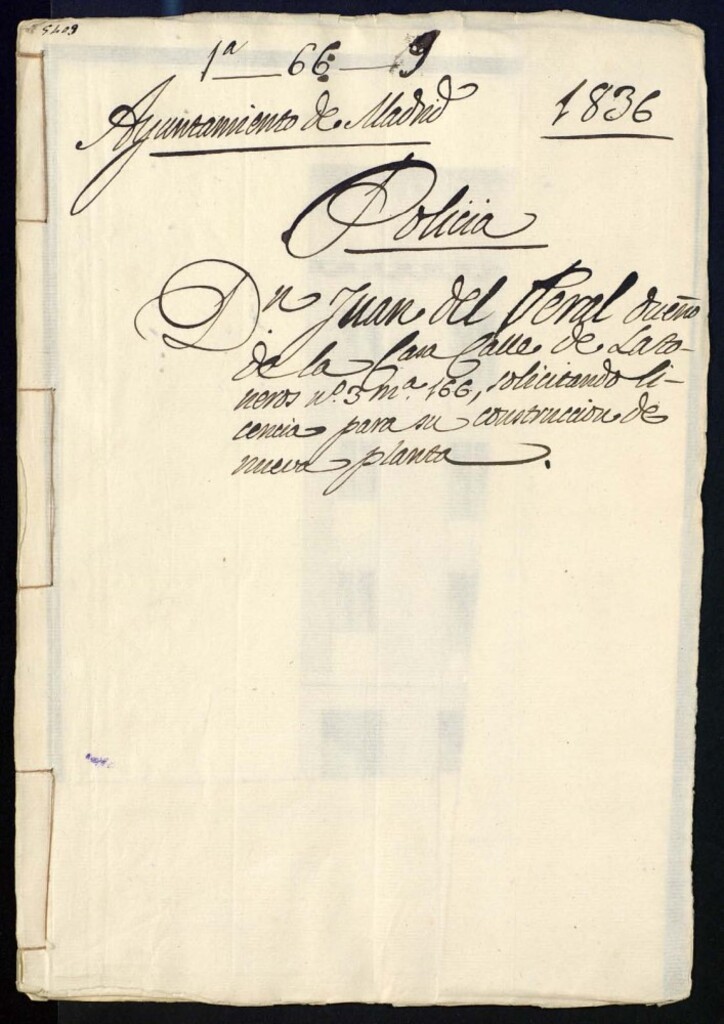 5409
1ª 66 9
Ayuntamiento de Madrid 1836
Policia
Dn Juan del Peral dueño
de la Casa Calle de Lato-
neros nº. 3 mª. 166, solicitando li-
cencia para su construccion de
nueva planta.